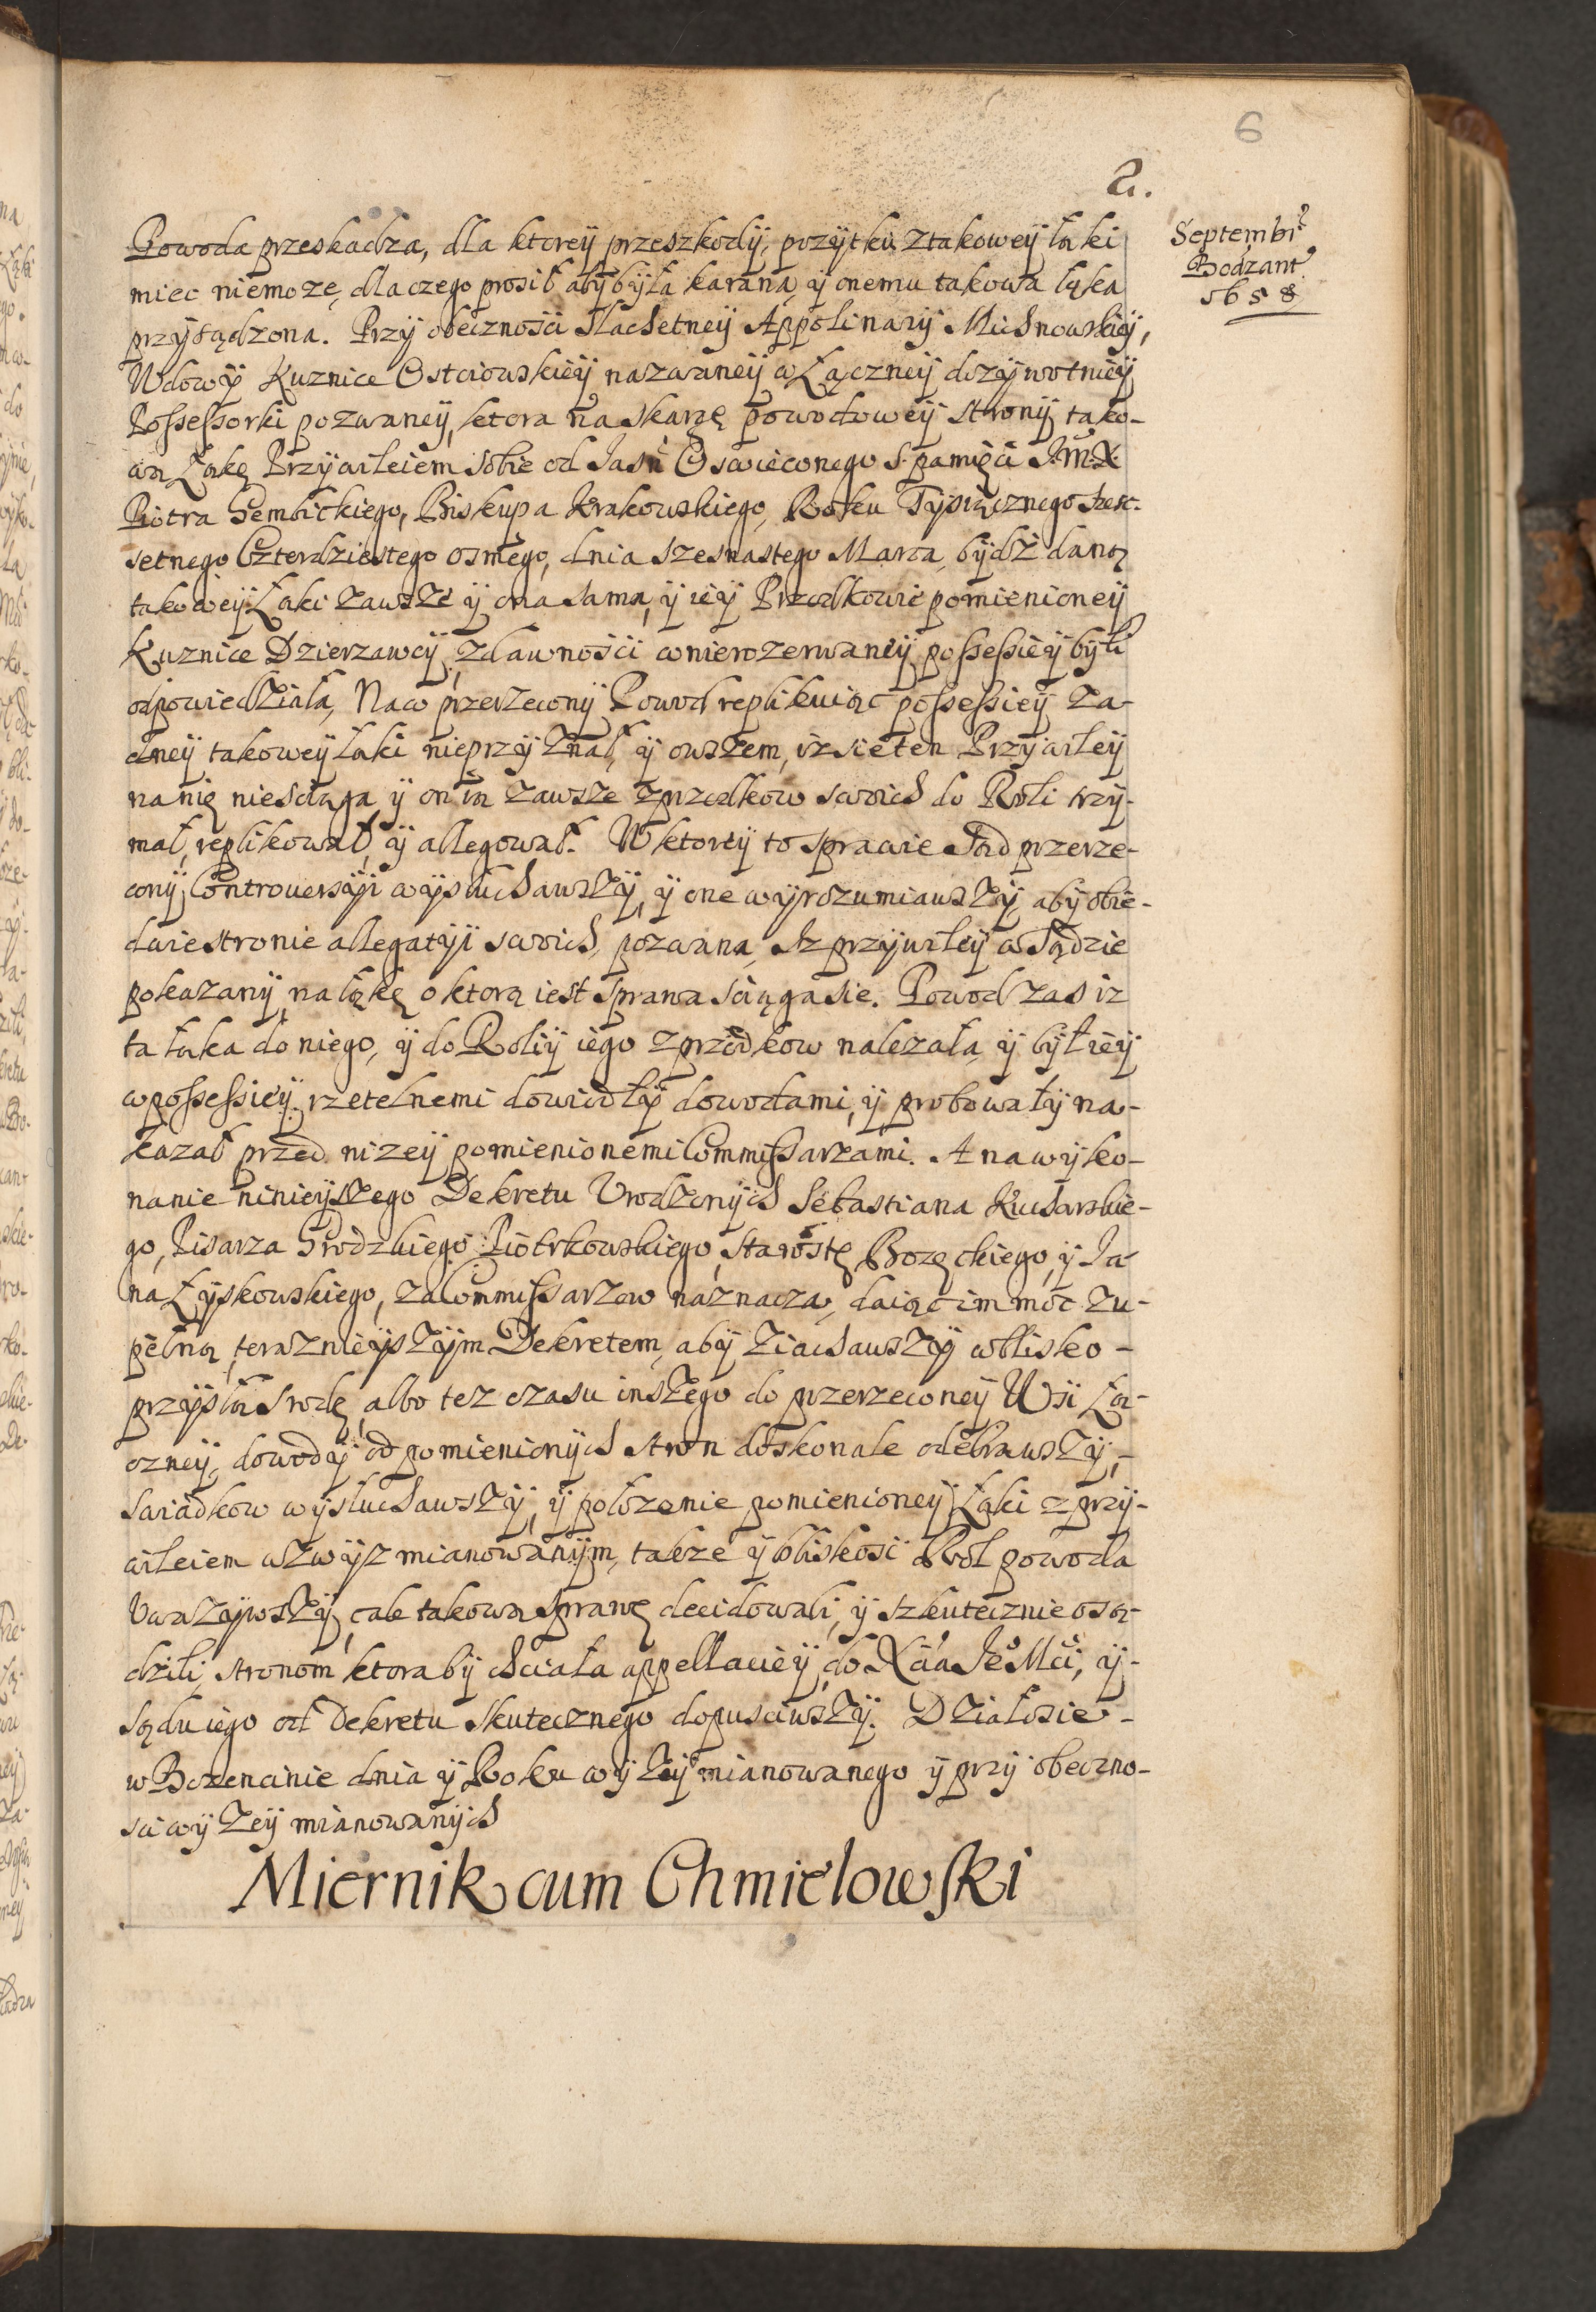 6
2.
Septembr
Bodzant
1658
Powoda przeskadza, dla ktoreÿ przeszkodÿ, pozÿtku ztakoweÿ łąki
miec niemoze, dlaczego prosił abÿ bÿła karana, ÿ onemu takowa łąka
przÿsądzona. Przÿ obecznosci Slachetneÿ Appolinarÿ Michnowskieÿ,
Wdowÿ Kuznice Ostciowskieÿ nazwaneÿ w Łączneÿ dozÿwotnieÿ
Possessorki pozwaneÿ, ktora na skargę powodoweÿ stronÿ tako-
wą Łąkę Przÿwileiem sobie od Jasn Oswieconego S. pamięci J.M.X
Piotra Gembickiego, Biskupa Krakowskiego, Roku Tÿsiącznego Szesc-
setnego Czterdziestego osmego, dnia szesnastego Marca, bÿdz daną
takoweÿ Łąki zawsze ÿ ona sama, ÿ ieÿ Przodkowie pomienioneÿ
Kuznice Dzierzawcÿ, zdawnosci w nierozerwaneÿ possessieÿ bÿli
odpowiedziała, Naco przerzeconÿ Powod replikuiąc possessieÿ za-
dneÿ takoweÿ łąki nieprzÿznał, ÿ owszem, iz sie ten Przÿwileÿ
na nię niesciąga ÿ on ią zawsze zprzodkow swoich do Roli trzÿ-
mał, replikował, ÿ allegował. W ktoreÿ to sprawie Sąd przerze-
conÿ Controuersÿi wÿsłuchawszÿ, ÿ one wÿrozumiawszÿ, abÿ obie-
dwie stronie allegatÿi swoich, pozwana, Iz przÿwileÿ w Sądzie
pokazanÿ, na łąkę o ktorą iest sprawa sciąga sie. Powod zas iz
ta łąka do niego, ÿ do Roliÿ iego zprzodkow nalezała, ÿ bÿł ieÿ
w possessieÿ rzetelnemi dowiodłÿ dowodami, ÿ probowałÿ na-
kazał przed nizeÿ pomienionemi Commissarzami. A na wÿko-
nanie ninieÿszego Dekretu Vrodzonÿch Sebastiana Kucharskie-
go, Pisarza Grodzkiego Piotrkowskiego, Starostę Bozęckiego, ÿ Ja-
na Łÿskowskiego, za Commissarzow naznacza, daiąc im moc zu-
pełną, teraznieÿszÿm Dekretem, abÿ ziachawszÿ w blisko-
przÿszłą srodę, albo tez czasu inszego do przerzeconeÿ Wsi Łą-
czneÿ, dowodÿ od pomienionÿch stron doskonale odebrawszÿ,-
Swiadkow wÿsłuchawszÿ, ÿ połozenie pomienioneÿ Łąki z przÿ-
wileiem wzwÿz mianowanÿm, takze ÿ bliskosc Rol powoda
Vwazÿwszÿ, całe takową sprawę decidowali, ÿ szkutecznie osą-
dzili, stronom ktora bÿ chciała appellacieÿ, do Xcia Je Mci, ÿ-
Sądu iego od Dekretu skutecznego dopusciwszÿ. Działosie-
w Bozencinie dnia ÿ Roku wÿzeÿ mianowanego ÿ przÿ obeczno-
sci wÿzeÿ mianowanÿch
Miernik cum Chmielowski